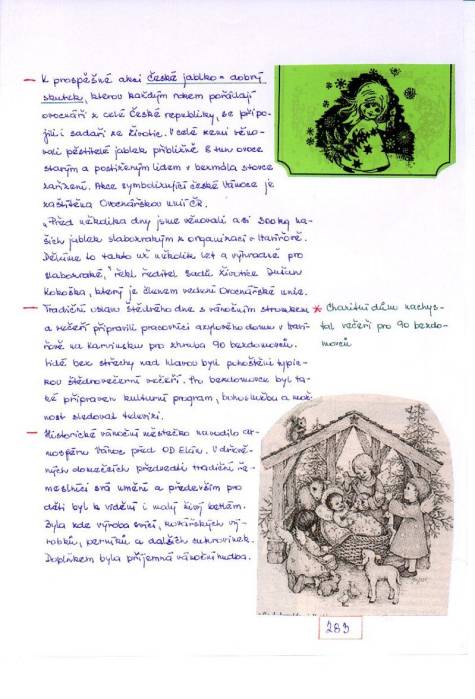 K prospěšné akci České jablko - dobrý
skutek, kterou každým rokem pořádají
ovocnáři z celé České republiky, se připo-
jili i sadaři ze Životic. V celé zemi věno-
vali pěstitelé jablek přibližně 8 tun ovoce
starým a postiženým lidem v bezmála stovce
zařízení. Akce symbolizující české Vánoce je
zaštítěna Ovocnářskou unií ČR.
"Před několika dny jsme věnovali asi 300 kg na-
šich jablek slabozrakým z organizací v Havířově.
Děláme to takto už několik let a výhradně pro
slabozraké," řekl ředitel sadů Životice Dušan
Kokoška, který je členem vedení Ovocnářské unie.
Tradiční oslavu Štědrého dne s vánočním stromkem
a večeří připravili pracovníci azylového domu v Haví-
řově na Karvinsku pro zhruba 90 bezdomovců.
Lidé bez střechy nad hlavou byli pohoštěni typic-
kou štědrovečerní večeří. Pro bezdomovce byl ta-
ké připraven kulturní program, bohoslužba a mož-
nost sledovat televizi.
* Charitní dům nachys-
tal večeři pro 90 bezdo-
movců
Historické vánoční městečko navodilo at-
mosféru Vánoc před OD Elán. V dřevě-
ných domečcích předváděli tradiční ře-
meslníci svá umění a především pro
děti byl k vidění i malý živý betlém.
Byla zde výroba svící, kovářských vý-
robků, perníků a dalších cukrovinek.
Doplňkem byla příjemná vánoční hudba.
283